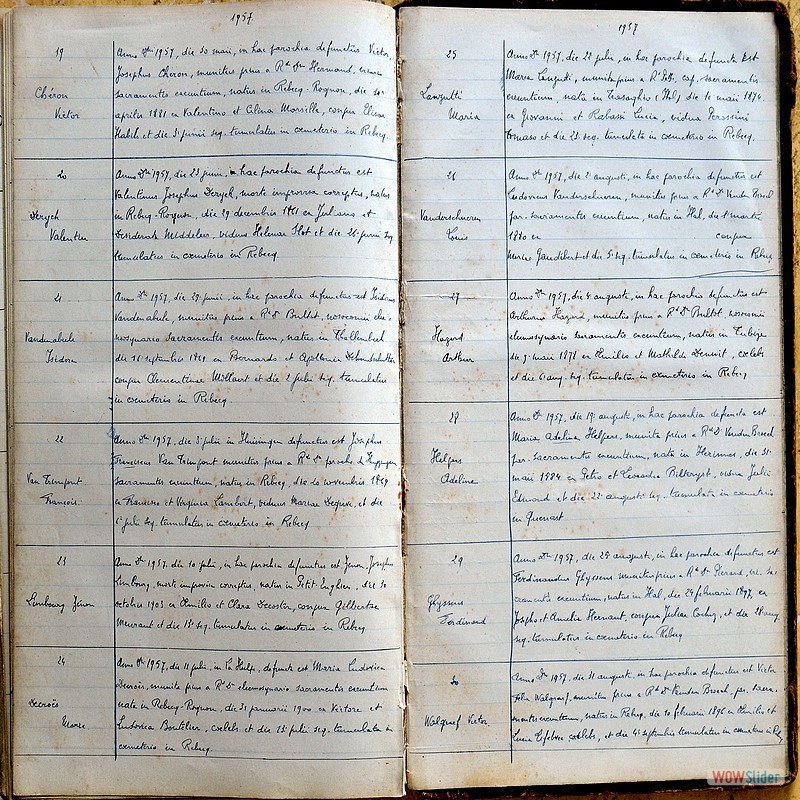 1957
19
Chéron
Victor
Anno Dni 1957, die 30 maii, in hac parochia defunctus Victor,
Josephus Chéron, munitus prius a Rdo Dno Hermand,
sacramentis exeuntium, natus in Rebecq-Rognon, die
aprilis 1881 ex Valentino et Celina Marseille, conjux
et die 3 junii seq. tumulatus in cemeterio in Rebecq.
20
Derych
Valentin
Anno Dni 1957, die 23 junii, in hac parochia defunctus est
Valentinus Josephus Derych, morte improvisa correptus, natus
in Rebecq-Rognon, die 29 decembris 1881 ex Juliano et
Desiderata Middeleer, viduus Helenae Slot et die 26 junii seq.
tumulatus in cemeterio in Rebecq.
21
Vandenabeele
Isidore
Anno Dni 1957, die 29 junii, in hac parochia defunctus est Isidorus
Vandenabeele, munitus prius a Rdo Dno Bultot, nosocomii ele
mosynario sacramentis exeuntium, natus in Thollembeek
die 16 septembris 1869 ex Bernardo et Apollonia
conjux Clementinae Möllaert et die 2 julii seq. tumulatus
in cemeterio in Rebecq.
22
Van Trimpont
François
Anno Dni 1957, die 3 julii in Huisingen defunctus est Josephus
Franciscus Van Trimpont munitus prius a Rdo Dno parocho
sacramentis exeuntium, natus in Rebecq, die 20 novembris 1869
ex Francisco et Virginia Lambert, viduus Mariae Dequive, et die
6 julii seq. tumulatus in cemeterio in Rebecq
23
Limbourg Zénon
Anno Dni 1957, die 10 julii, in hac parochia defunctus est Zénon, Joseph
Limbourg, morte improvisa correptus, natus in Petit Enghien, die 30
octobris 1903 ex Emilio et Clara Decoster, conjux Gilbertae
Meurant et die 13 seq. tumulatus in cemeterio in Rebecq
24
Decroës
Marie
Anno Dni 1957, die 11 julii, in La Hulpe, defuncta est Maria Ludovica
Decroës, munita prius a Rdo Dno elemosynario sacramentis exeuntium
nata in Rebecq-Rognon, die 31 januarii 1900 ex Victore et
Ludovica Boutelier, coelebs et die 13 julii seq. tumulata in
cemeterio in Rebecq.
1957
25
Lanzutti
Maria
Anno Dni 1957, die 22 julii, in hac parochia defuncta est
Maria Lanzutti, munita prius a Rdo cap. sacramentis
exeuntium, nata in Trasaghis (Ital) die 10 maii 1874
ex Giovanni et Rabassi Lucia, vidua
Tomaso et die 23 seq. tumulata in cemeterio in Rebecq.
26
Vanderschueren
Louis
Anno Dni 1957, die 2 augusti, in hac parochia defunctus est
Ludovicus Vanderschueren, munitus prius a Rdo Dno Vanden Broeck
par. sacramentis exeuntium, natus in Hal, die 1 martii
1880 ex conjux
Mariae Gaudibert et die 5 seq. tumulatus in cemeterio in Rebecq
27
Hazard
Arthur
Anno Dni 1957, die 4 augusti, in hac parochia defunctus est
Arthurus Hazard, munitus prius a Rdo Dno Bultot, nosocomii
elemosynario sacramentis exeuntium, natus in Tubize
die 9 maii 1871 ex Emilio et Mathilde Demuit, coelebs
et die 6 aug. seq. tumulatus in cemeterio in Rebecq
28
Helpers
Adeline
Anno Dni 1957, die 19 augusti, in hac parochia defuncta est
Maria Adelina Helpers, munita prius a Rdo Dno Vanden Broeck
par. sacramentis exeuntium, nata in Herinnes, die 31
maii 1884 ex Petro et Leocadia vidua Julii
Edmond et die 22 augusti seq. tumulata in cemeterio
in Quenast
29
Ghyssens
Ferdinand
Anno Dni 1957, die 25 augusti, in hac parochia defunctus est
Ferdinandus Ghyssens munitus prius a Rdo Dno Pierard, vic. sa
cramentis exeuntium, natus in Hal, die 24 februarii 1897, ex
Josepho et Amelia Heernaut, conjux Juliae et die 28 aug.
seq. tumulatus in cemeterio in Rebecq
30
Walgraef Victor
Anno Dni 1957, die 31 augusti, in hac parochia defunctus est Victor
Walgraef, munitus prius a Rdo Dno Vanden Broeck, par. sacra
mentis exeuntium, natus in Rebecq, die 10 februarii 1896 ex Emilio et
Lucia Lefebvre coelebs, et die 4 septembris tumulatus in cemeterio in Rebecq
WOWSlider